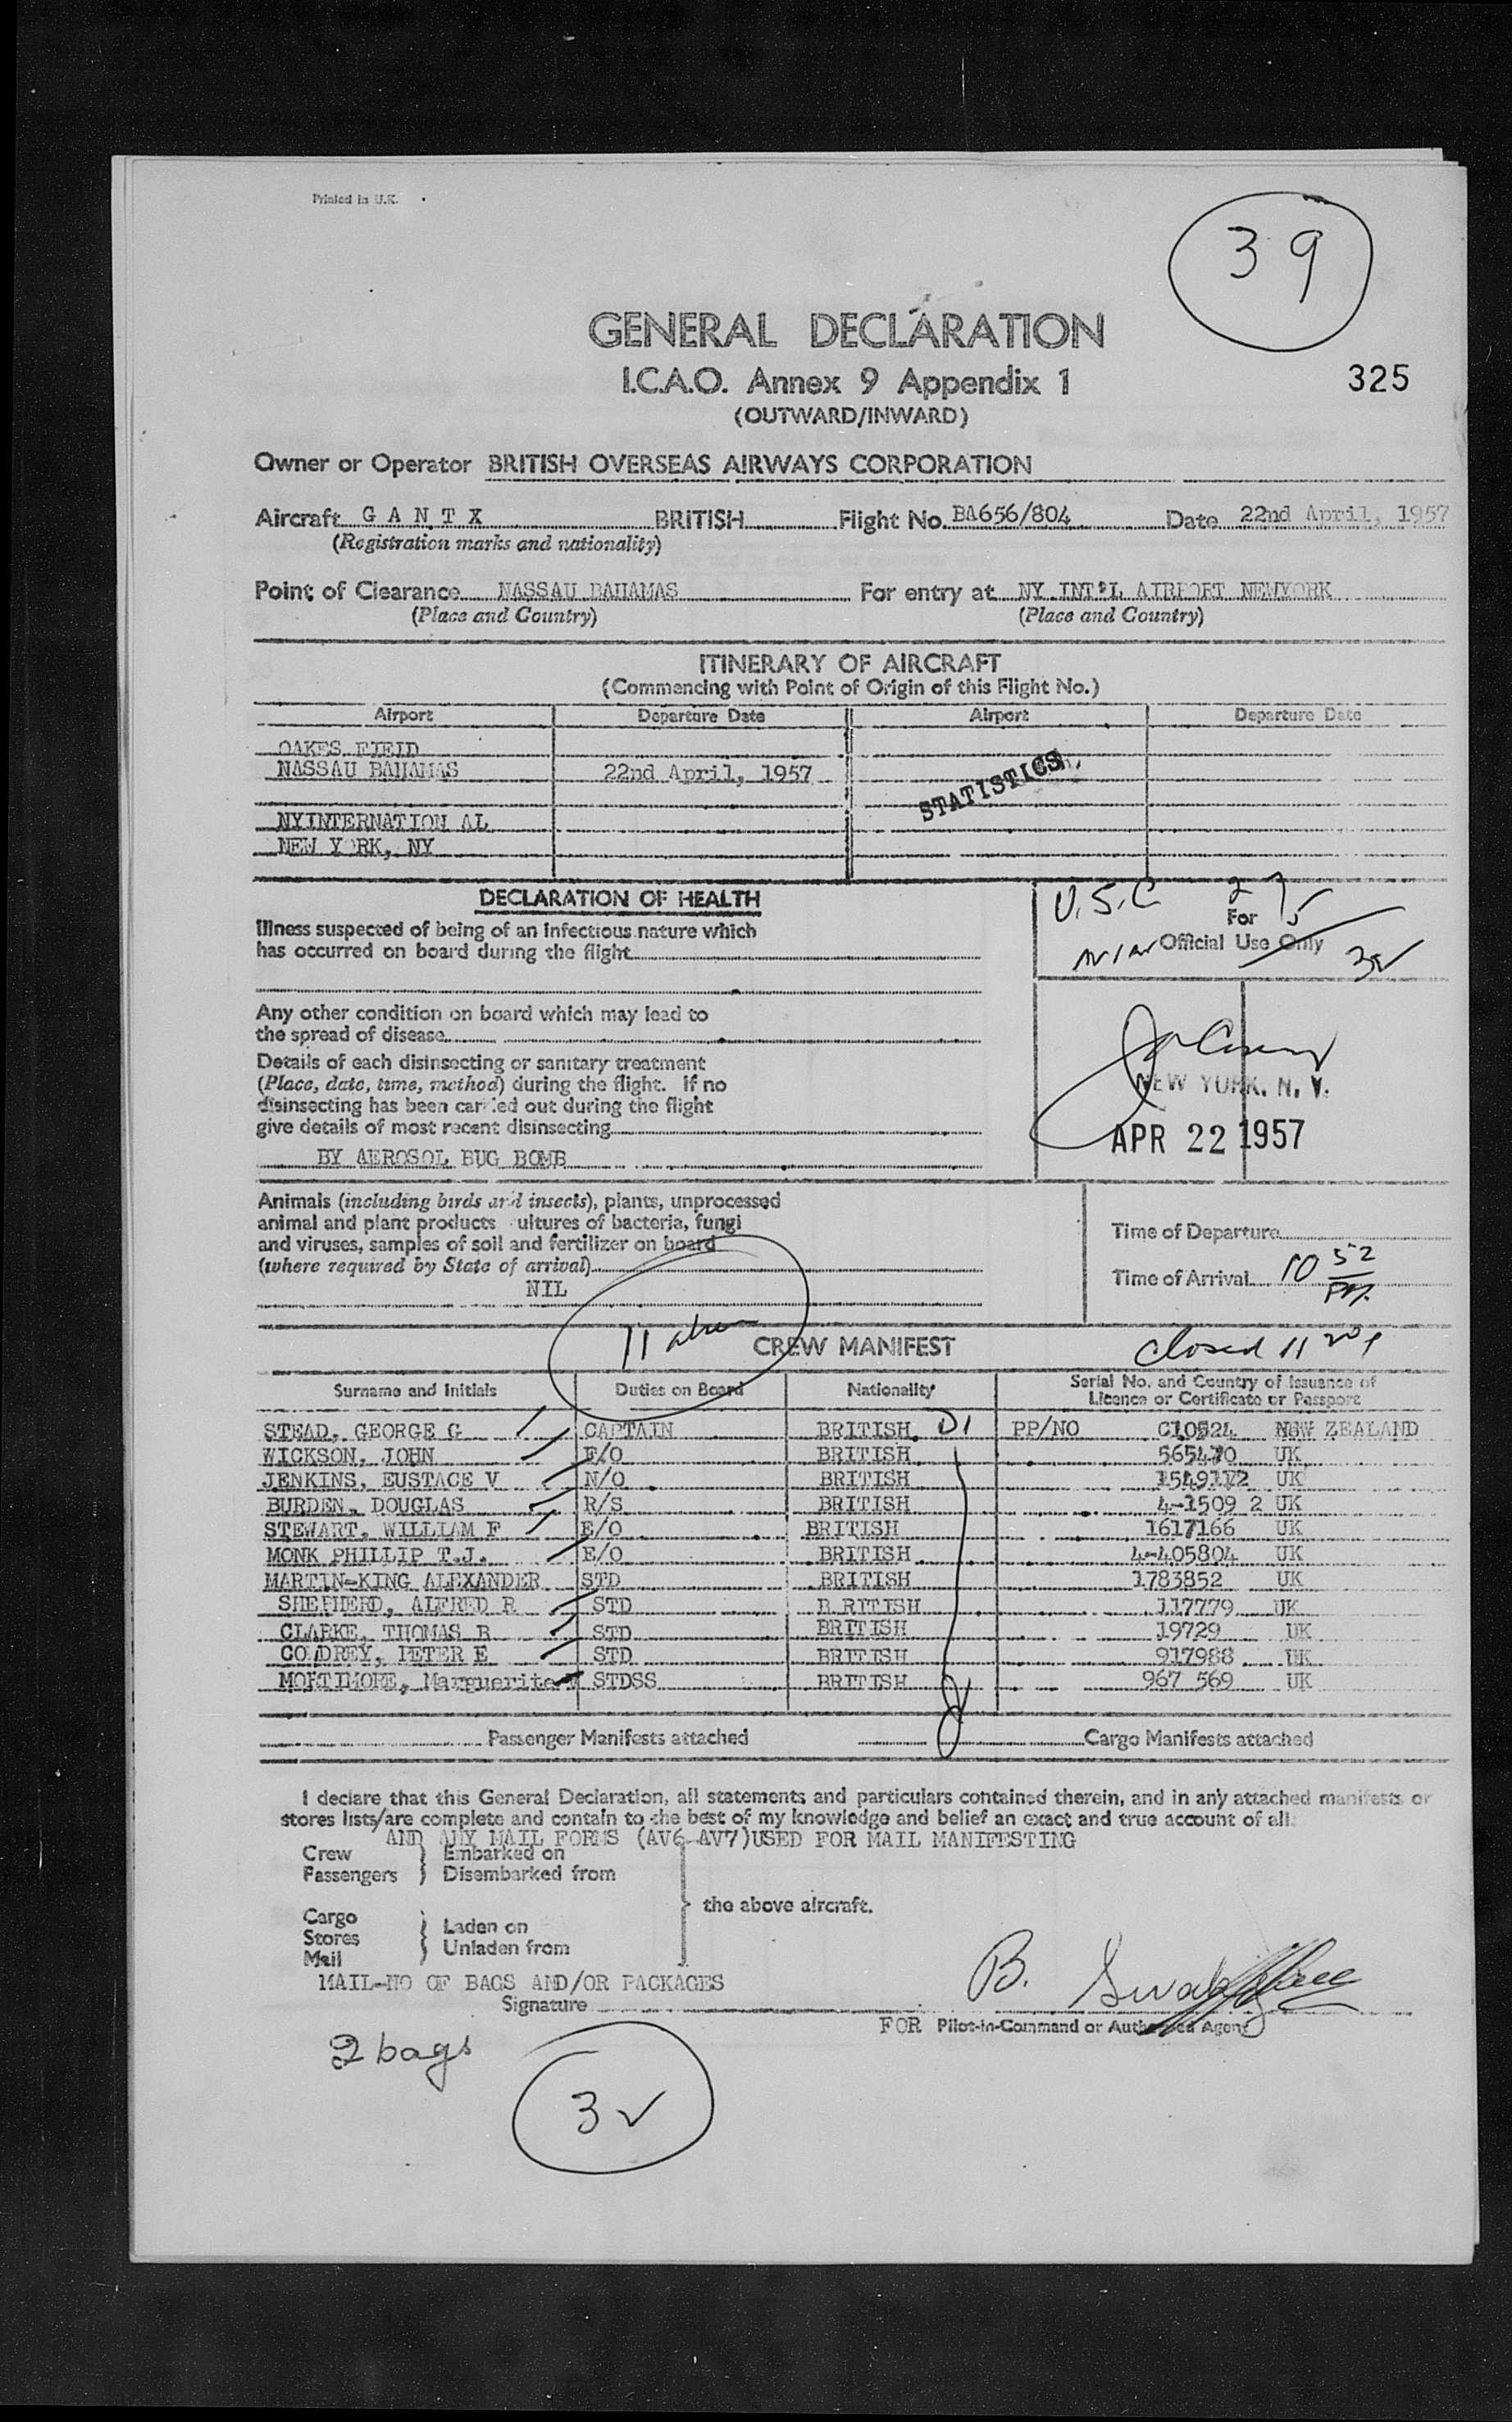 Printed in U.K.
39
GENERAL DECLARATION
I.C.A.O. Annex 9 Appendix 1
325
(OUTWARD/INWARD)
Owner or Operator BRITISH OVERSEAS AIRWAYS CORPORATION
Aircraft G A N T X BRITISH Flight No. BA656/804 Date 22nd April, 1957
(Registration marks and nationality)
Point of Clearance NASSAU BAHAMAS For entry at NY INT'L AIRPORT NEWYORK
(Place and Country) (Place and Country)
ITINERARY OF AIRCRAFT
(Commencing with Point of Origin of this Flight No.)
Airport Departure Date Airport Departure Date
OAKES FIELD
NASSAU BAHAMAS 22nd April, 1957
STATISTICS
NYINTERNATION AL
NEW YORK, NY
DECLARATION OF HEALTH
U.S.C. 27
For 5
Illness suspected of being of an infectious nature which
has occurred on board during the flight
Official Use Only
Any other condition on board which may lead to
the spread of disease
Details of each disinsecting or sanitary treatment
(Place, date, time, method) during the flight. If no
disinsecting has been carried out during the flight
give details of most recent disinsecting
BY AEROSOL BUG BOMB
NEW YORK, N. Y.
APR 22 1957
Animals (including birds and insects), plants, unprocessed
animal and plant products ultures of bacteria, fungi
and viruses, samples of soil and fertilizer on board
(where required by State of arrival)
NIL
Time of Departure
Time of Arrival 10 52 PM.
11
CREW MANIFEST
closed 11 20 P
Surname and Initials Duties on Board Nationality Serial No. and Country of Issuance of
Licence or Certificate or Passport
STEAD, GEORGE G CAPTAIN BRITISH D1 PP/NO C10524 NEW ZEALAND
WICKSON, JOHN F/O BRITISH 565470 UK
JENKINS, EUSTACE V N/O BRITISH 1549112 UK
BURDEN, DOUGLAS R/S BRITISH 4-1509 2 UK
STEWART, WILLIAM F E/O BRITISH 1617166 UK
MONK PHILLIP T.J. E/O BRITISH 4-405804 UK
MARTIN-KING ALEXANDER STD BRITISH 1783852 UK
SHEPHERD, ALFRED R STD B RITISH 117779 UK
CLARKE, THOMAS R STD BRITISH 19729 UK
COWDREY, PETER E STD BRITISH 917988 UK
MORTIMORE, Marguerite STDSS BRITISH 967 569 UK
Passenger Manifests attached Cargo Manifests attached
I declare that this General Declaration, all statements and particulars contained therein, and in any attached manifests or
stores lists/are complete and contain to the best of my knowledge and belief an exact and true account of all:
AND ANY MAIL FORMS (AV6-AV7)USED FOR MAIL MANIFESTING
Crew } Embarked on
Passengers } Disembarked from
the above aircraft.
Cargo
Stores } Laden on
Mail } Unladen from
MAIL-NO OF BAGS AND/OR PACKAGES
Signature B.
FOR Pilot-in-Command or Authorised Agent
2 bags
32